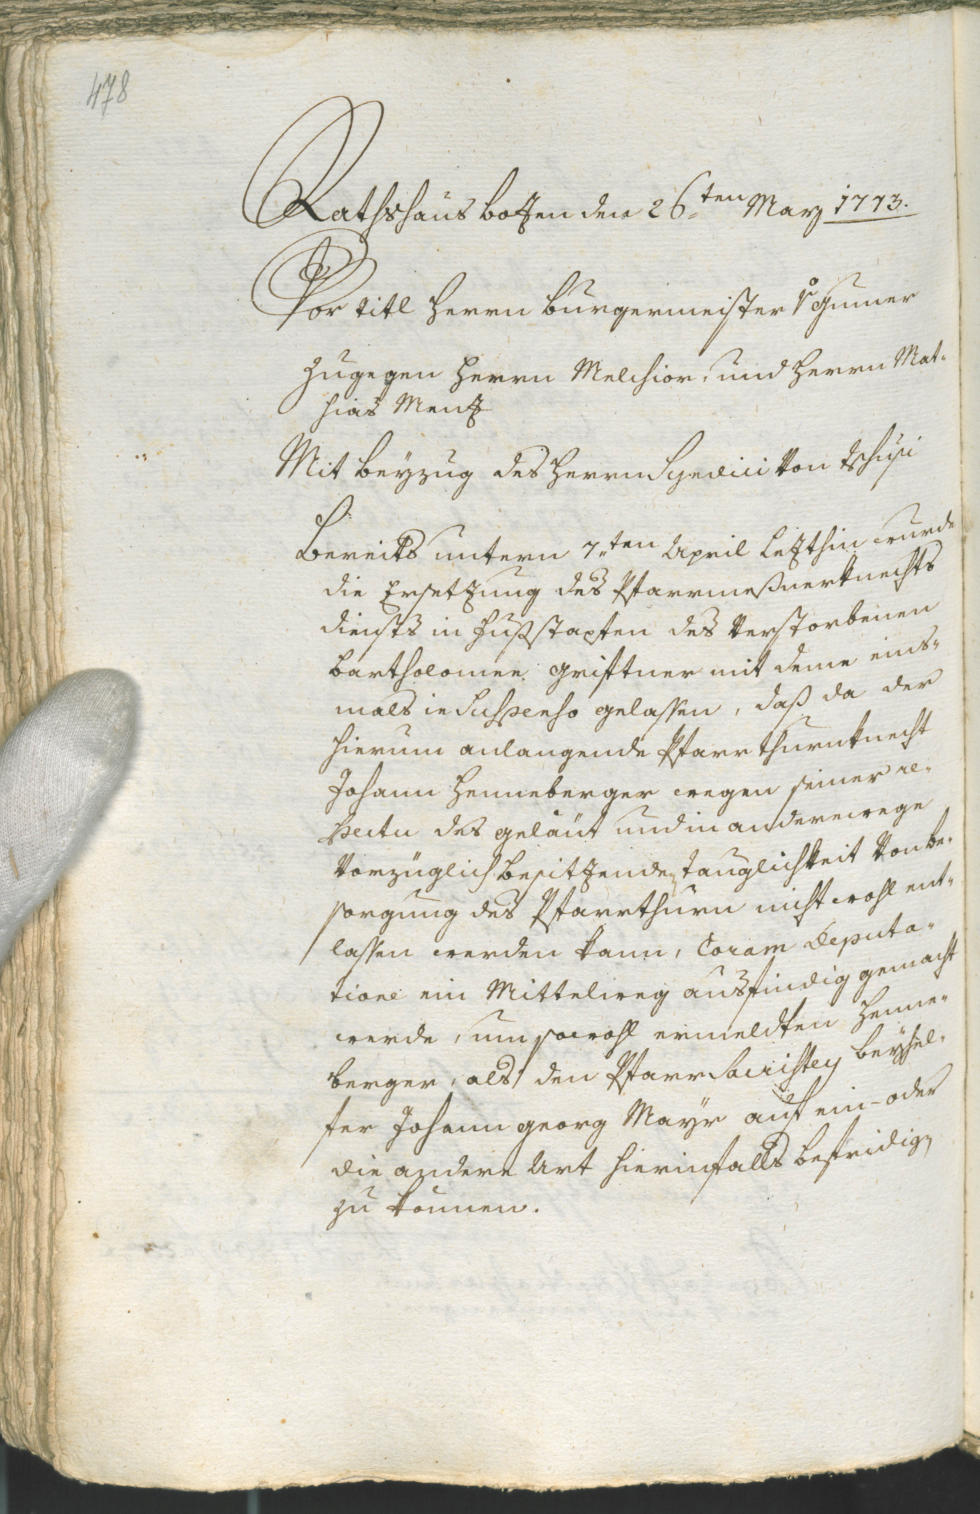 478
Rathshaus botzen den 26.ten May 1773.
Vor titl Herrn burgermeister v Gumer
Zugegen Herrn Melchior, und Herrn Mat-
hias Mentz
Mit beyzug des Herrn Syndici von Tschusi
Bereits untern 7.ten April letzthin wurde
die Ersetzung des Pfarrmeßnerknechts
diensts in fußstapfen des verstorbenen
Bartholomee Griftner mit deme eins-
mals in Suspenso gelassen, daß da der
hierum anlangende Pfarrthurnknecht
Johann Henneberger wegen seiner re-
spectu des geläut und in andere wege
vorzüglich besitzenden tauglichkeit von be-
sorgung des Pfarrthurn nicht wohl ent-
lassen werden kann, Coram Deputa-
tione ein Mittelweg ausfindig gemacht
werde, um sowohl ermeldten Henne-
berger, als den Pfarr Sacristey beyhel-
fer Johann georg Mayr auf ein- oder
die andere Art hierinfalls befridigen
zu können.